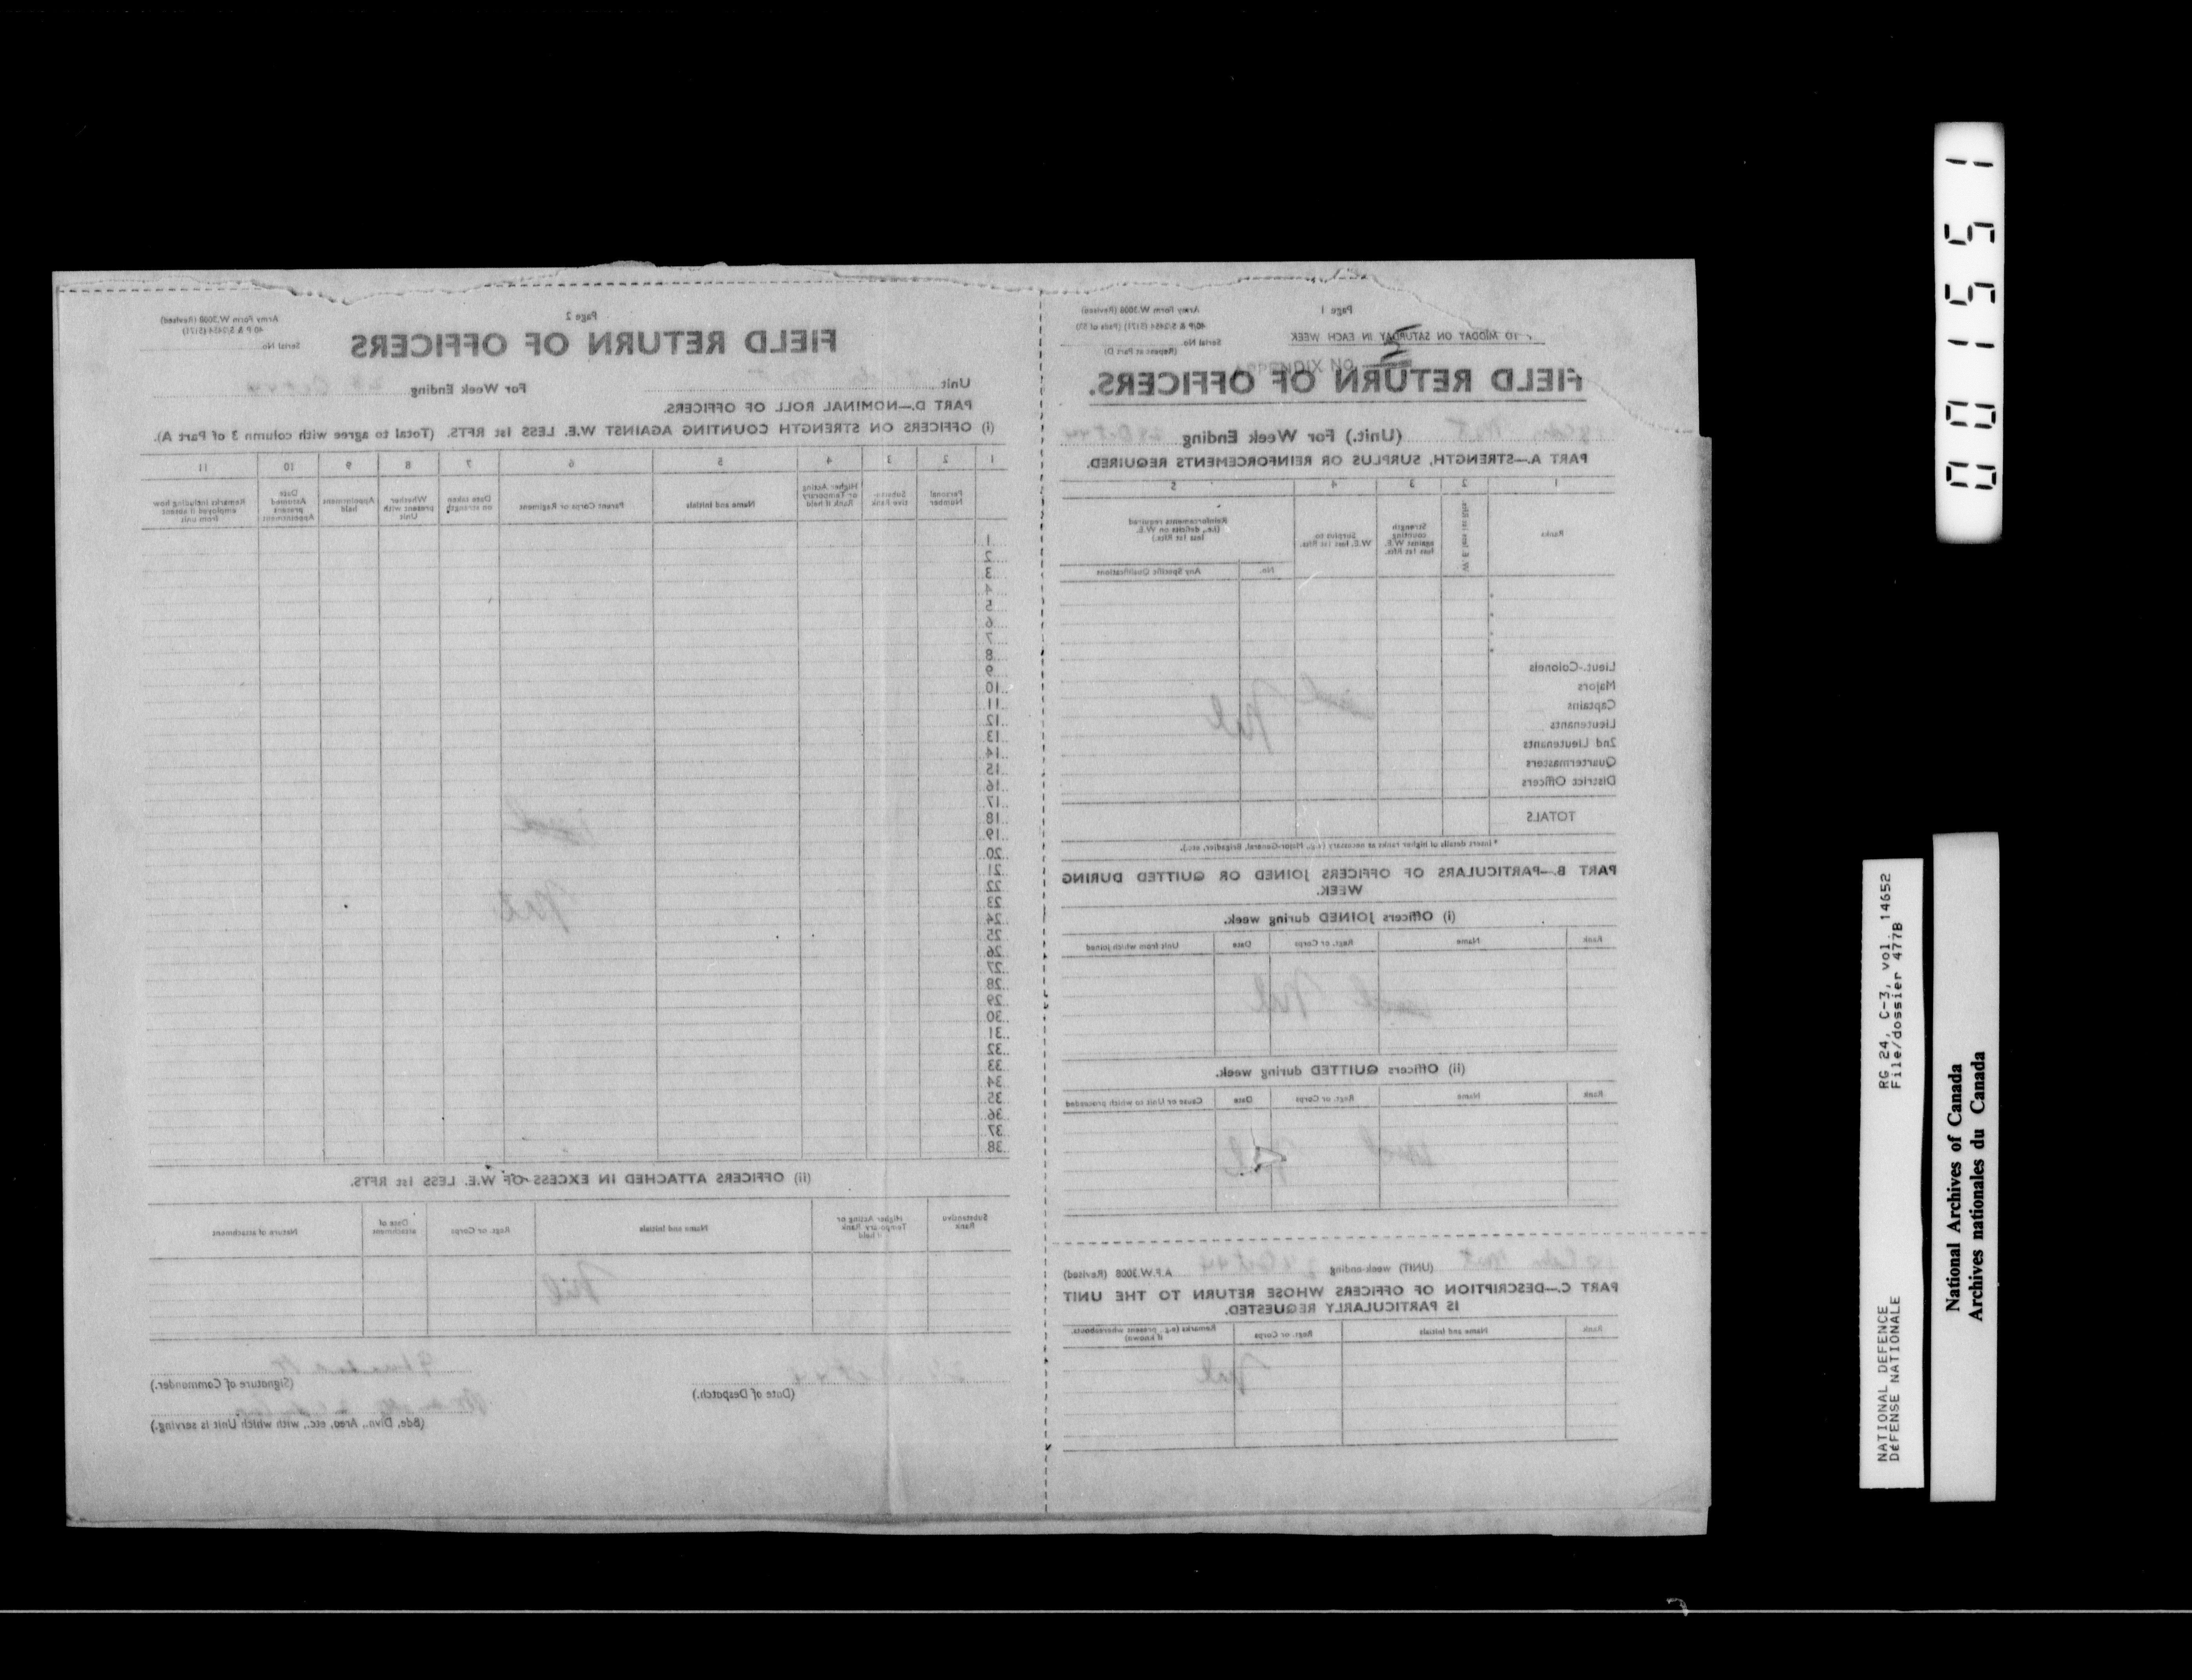 Page 1
Army Form W.3008 (Revised)
TO MIDDAY ON SATURDAY IN EACH WEEK
Serial No.
(Repeat at Part D)
APPENDIX NO. 5
FIELD RETURN OF OFFICERS.
(Unit.) For Week Ending
PART A.—STRENGTH, SURPLUS OR REINFORCEMENTS REQUIRED.
1 2 3 4 5
Ranks
W. E. less 1st Rfts.
Strength
counting
against W.E.
less 1st Rfts.
Surplus to
W.E. less 1st Rfts.
Reinforcements required
(i.e., deficits on W.E.
less 1st Rfts.)
No. Any Specific Qualifications
Lieut.-Colonels
Majors
Captains
Lieutenants
2nd Lieutenants
Quartermasters
District Officers
Nil
TOTALS
* Insert details of higher ranks as necessary (e.g., Major-General, Brigadier, etc.).
PART B.—PARTICULARS OF OFFICERS JOINED OR QUITTED DURING
WEEK.
(i) Officers JOINED during week.
Rank Name Regt. or Corps Date Unit from which joined
Nil
(ii) Officers QUITTED during week.
Rank Name Regt. or Corps Date Cause or Unit to which proceeded
Nil
(UNIT) week-ending A.F.W.3008 (Revised)
PART C.—DESCRIPTION OF OFFICERS WHOSE RETURN TO THE UNIT
IS PARTICULARLY REQUESTED.
Rank Name and Initials Regt. or Corps Remarks (e.g., present whereabouts,
if known)
Nil
Page 2
Army Form W.3008 (Revised)
Serial No.
FIELD RETURN OF OFFICERS
Unit For Week Ending
PART D.—NOMINAL ROLL OF OFFICERS.
(i) OFFICERS ON STRENGTH COUNTING AGAINST W.E. LESS 1st RFTS. (Total to agree with column 3 of Part A).
1 2 3 4 5 6 7 8 9 10 11
Personal
Number
Substan-
tive Rank
Higher Acting
or Temporary
Rank if held
Name and Initials
Parent Corps or Regiment
Date taken
on strength
Whether
present with
Unit
Appointment
held
Date
Assumed
present
Appointment
Remarks including how
employed if absent
from unit
1
2
3
4
5
6
7
8
9
10
11
12
13
14
15
16
17
18
19
20
21
22
23
24
25
26
27
28
29
30
31
32
33
34
35
36
37
38
Nil
(ii) OFFICERS ATTACHED IN EXCESS OF W.E. LESS 1st RFTS.
Substantive
Rank
Higher Acting or
Temporary Rank
if held
Name and Initials
Regt. or Corps
Date of
attachment
Nature of attachment
Nil
(Date of Despatch.)
(Signature of Commander.)
(Bde, Divn., Area, etc., with which Unit is serving.)
00155 1
RG 24, C-3, vol. 14652
File/dossier 477B
NATIONAL DEFENCE
DÉFENSE NATIONALE
National Archives of Canada
Archives nationales du Canada